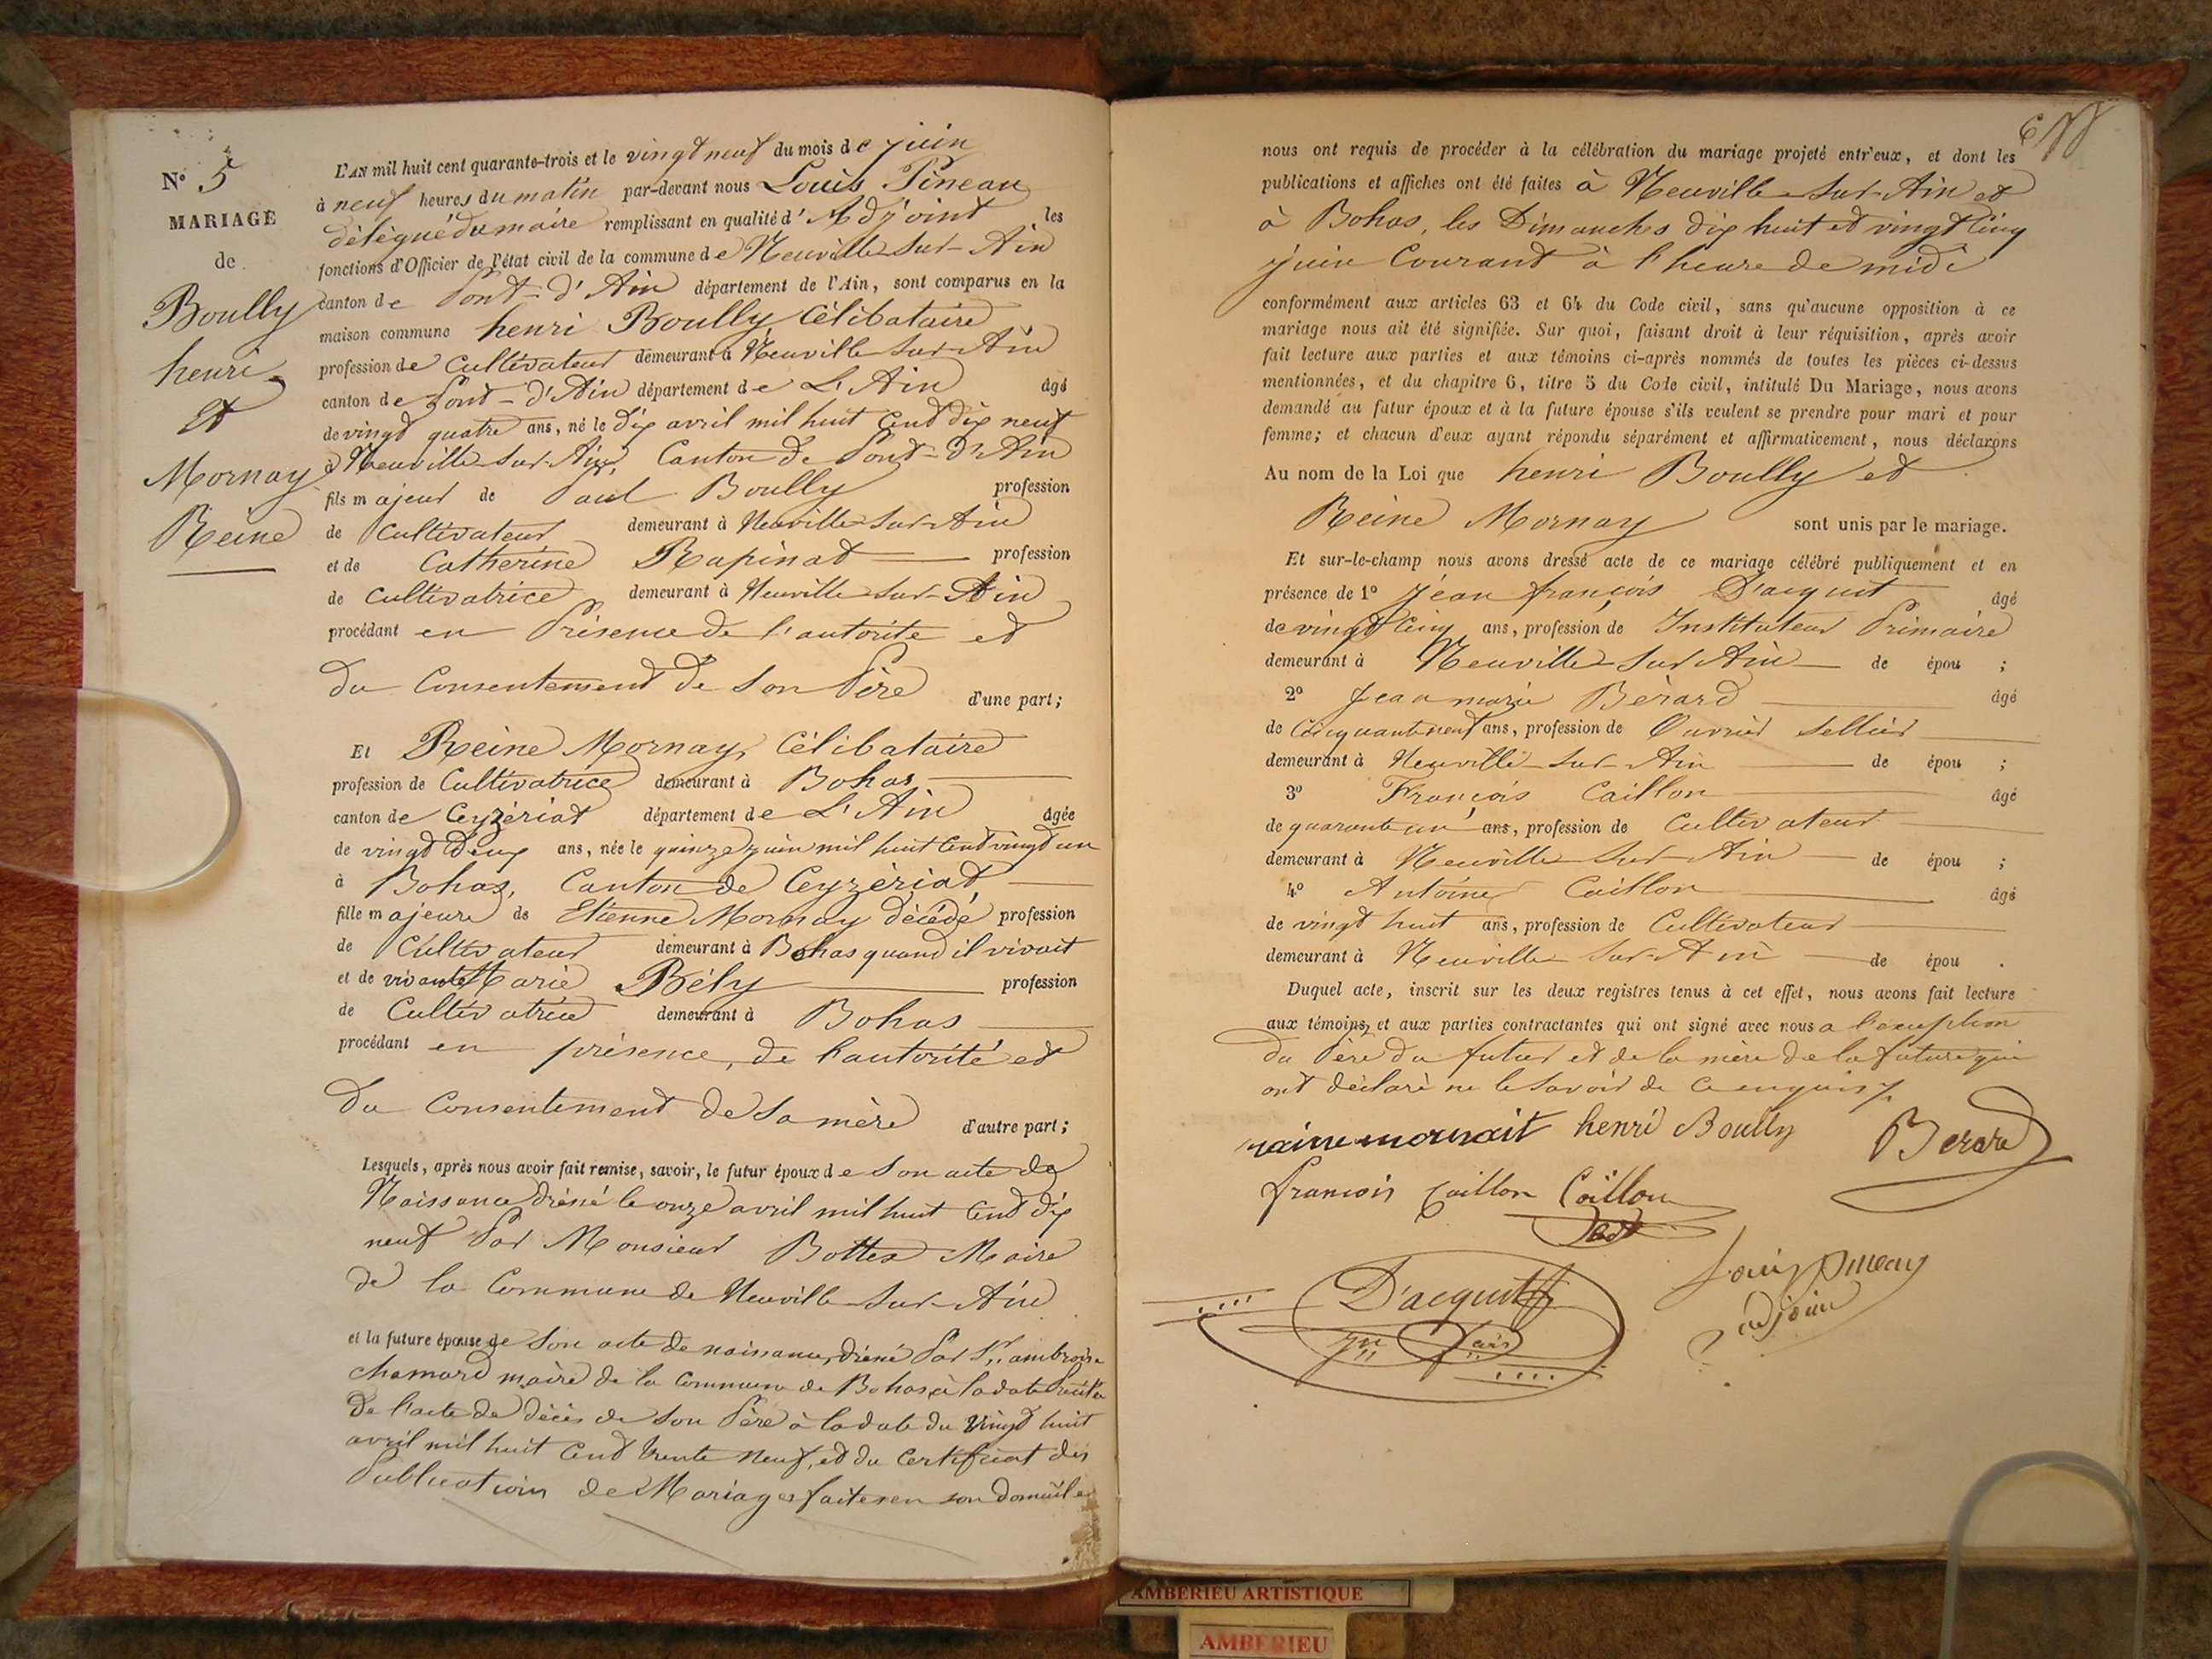 N° 5
MARIAGE
de
Boully
henri
Et
Mornay
Reine
L'AN mil huit cent quarante-trois et le vingt neuf du mois de juin
à neuf heures du matin par-devant nous Louis Pineau
délégué du maire remplissant en qualité d'Adjoint les
fonctions d'Officier de l'état civil de la commune de Neuville-Sur-Ain
canton de Pont-d'Ain département de l'Ain, sont comparus en la
maison commune henri Boully, Célibataire
profession de Cultivateur demeurant à Neuville-Sur-Ain
canton de Pont-d'Ain département de L'Ain âgé
de vingt quatre ans, né le dix avril mil huit Cent dix neuf
à Neuville-Sur-Ain, Canton de Pont-d'Ain
fils majeur de Paul Boully profession
de Cultivateur demeurant à Neuville-Sur-Ain
et de Catherine Rapinat profession
de Cultivatrice demeurant à Neuville-Sur-Ain
procédant en Présence de l'autorité et
du Consentement de Son Père d'une part;
Et Reine Mornay, Célibataire
profession de Cultivatrice demeurant à Bohas
canton de Ceyzériat département de L'Ain âgée
de vingt deux ans, née le quinze juin mil huit Cent vingt un
à Bohas, Canton de Ceyzériat,
fille majeure de Etienne Mornay décédé profession
de Cultivateur demeurant à Bohas quand il vivait
et de vivante Marie Bély profession
de Cultivatrice demeurant à Bohas
procédant en présence, de l'autorité et
du Consentement de Sa mère d'autre part;
Lesquels, après nous avoir fait remise, savoir, le futur époux de Son acte de
Naissance dréssé le onze avril mil huit Cent dix
neuf Par Monsieur Bottex Maire
de la Commune de Neuville-Sur-Ain
et la future épouse de Son acte de naissance, dréssé Par Sr. ambroise
chamard maire de la Commune de Bohas, à la date
de l'acte de décès de Son Père à la date du vingt huit
avril mil huit Cent trente neuf, et du Certificat des
Publications de Mariages faites en son domicile
nous ont requis de procéder à la célébration du mariage projeté entr'eux, et dont les
publications et affiches ont été faites à Neuville-Sur-Ain et
à Bohas, les Dimanches dix huit et vingt Cinq
juin Courant à l'heure de midi
conformément aux articles 63 et 64 du Code civil, sans qu'aucune opposition à ce
mariage nous ait été signifiée. Sur quoi, faisant droit à leur réquisition, après avoir
fait lecture aux parties et aux témoins ci-après nommés de toutes les pièces ci-dessus
mentionnées, et du chapitre 6, titre 5 du Code civil, intitulé Du Mariage, nous avons
demandé au futur époux et à la future épouse s'ils veulent se prendre pour mari et pour
femme; et chacun d'eux ayant répondu séparément et affirmativement, nous déclarons
Au nom de la Loi que henri Boully et
Reine Mornay sont unis par le mariage.
Et sur-le-champ nous avons dressé acte de ce mariage célébré publiquement et en
présence de 1° jean françois D'acquit âgé
de vingt Cinq ans, profession de Instituteur Primaire
demeurant à Neuville-Sur-Ain de épou ;
2° Jean marie Bérard âgé
de Cinquante neuf ans, profession de Ouvrier Sellier
demeurant à Neuville-Sur-Ain de épou ;
3° François Caillon âgé
de quarante un ans, profession de Cultivateur
demeurant à Neuville-Sur-Ain de épou ;
4° Antoine Caillon âgé
de vingt huit ans, profession de Cultivateur
demeurant à Neuville-Sur-Ain de épou .
Duquel acte, inscrit sur les deux registres tenus à cet effet, nous avons fait lecture
aux témoins, et aux parties contractantes qui ont signé avec nous a l'exception
du Père du futur et de la mère de la future qui
ont déclaré ne le Savoir de ce enquis
henri Boully Berard
francois Caillon Caillon
D'acquit
jn fois
Louis pineau
adjoint
AMBERIEU ARTISTIQUE
AMBERIEU